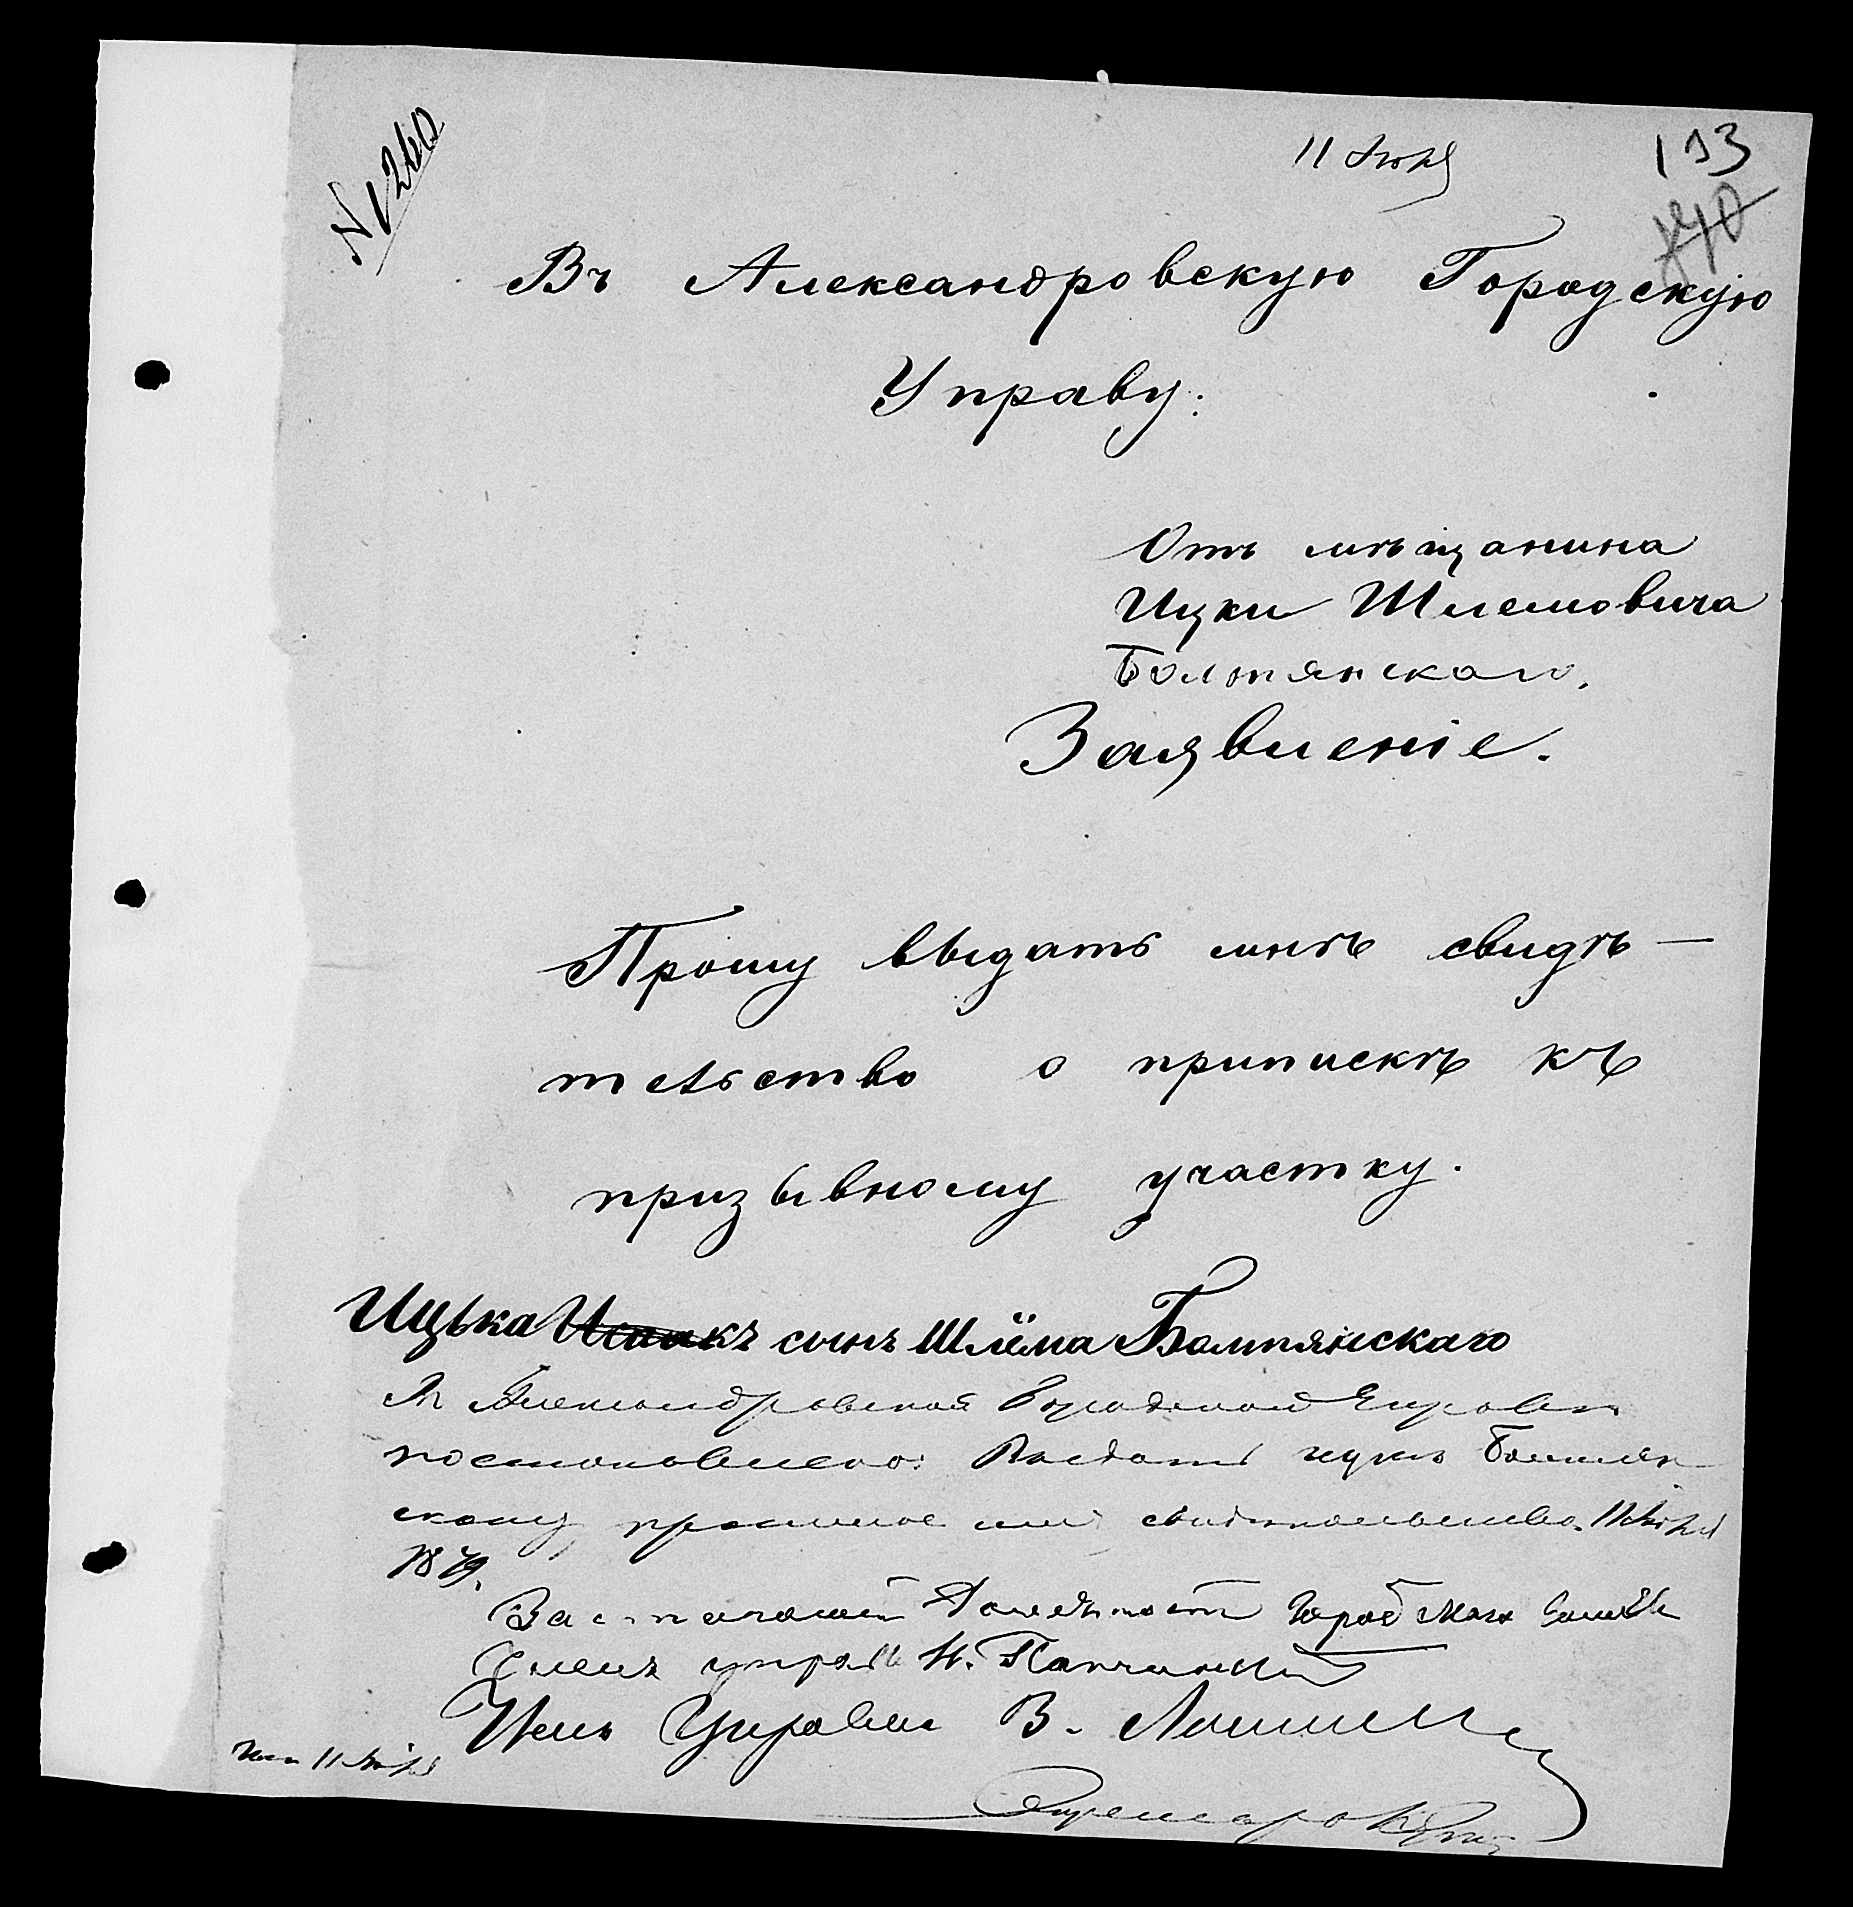 N 1260
11 Іюня
193
Въ Александровскую Городскую
Управу.
Отъ мѣщанина
Ицки Шлемовича
Болтянскаго.
Заявленіе.
Прошу выдать мнѣ свидѣ—
тельство о припискѣ къ
призывному участку.
Ицька Исаакъ сынъ Шлёма Балтянскаго
Въ Александровской Городской Управѣ
постановлено: Выдать Ицкѣ Болтян
скому просимое имъ свидѣтельство. 11 Іюня
1879.
Должность Город
Членъ управы Н.
Членъ Управы В.
Секретарь
11 Іюня